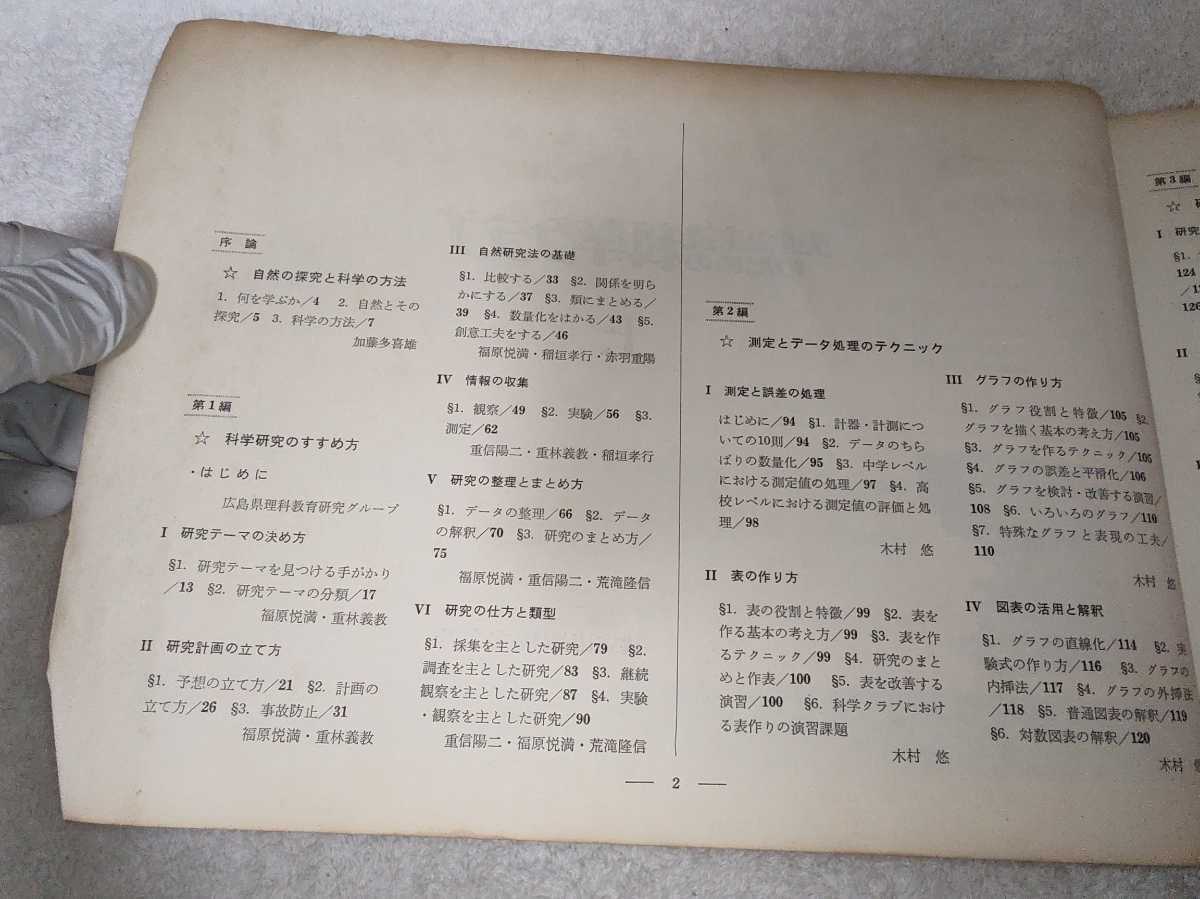 序論
☆ 自然の探究と科学の方法
1. 何を学ぶか/4 2. 自然とその
探究/5 3. 科学の方法/7
加藤多喜雄
第1編
☆ 科学研究のすすめ方
・はじめに
広島県理科教育研究グループ
I 研究テーマの決め方
§1. 研究テーマを見つける手がかり
/13 §2. 研究テーマの分類/17
福原悦満・重林義教
II 研究計画の立て方
§1. 予想の立て方/21 §2. 計画の
立て方/26 §3. 事故防止/31
福原悦満・重林義教
III 自然研究法の基礎
§1. 比較する/33 §2. 関係を明ら
かにする/37 §3. 類にまとめる/
39 §4. 数量化をはかる/43 §5.
創意工夫をする/46
福原悦満・稲垣孝行・赤羽重陽
IV 情報の収集
§1. 観察/49 §2. 実験/56 §3.
測定/62
重信陽二・重林義教・稲垣孝行
V 研究の整理とまとめ方
§1. データの整理/66 §2. データ
の解釈/70 §3. 研究のまとめ方/
75
福原悦満・重信陽二・荒滝隆信
VI 研究の仕方と類型
§1. 採集を主とした研究/79 §2.
調査を主とした研究/83 §3. 継続
観察を主とした研究/87 §4. 実験
・観察を主とした研究/90
重信陽二・福原悦満・荒滝隆信
第2編
☆ 測定とデータ処理のテクニック
I 測定と誤差の処理
はじめに/94 §1. 計器・計測につ
いての10則/94 §2. データのちら
ばりの数量化/95 §3. 中学レベル
における測定値の処理/97 §4. 高
校レベルにおける測定値の評価と処
理/98
木村 悠
II 表の作り方
§1. 表の役割と特徴/99 §2. 表を
作る基本の考え方/99 §3. 表を作
るテクニック/99 §4. 研究のまと
めと作表/100 §5. 表を改善する
演習/100 §6. 科学クラブにおけ
る表作りの演習課題
木村 悠
III グラフの作り方
§1. グラフ役割と特徴/105 §2.
グラフを描く基本の考え方/105
§3. グラフを作るテクニック/105
§4. グラフの誤差と平滑化/106
§5. グラフを検討・改善する演習/
108 §6. いろいろのグラフ/110
§7. 特殊なグラフと表現の工夫/
110
木村 悠
IV 図表の活用と解釈
§1. グラフの直線化/114 §2. 実
験式の作り方/116 §3. グラフの
内挿法/117 §4. グラフの外挿法
/118 §5. 普通図表の解釈/119
§6. 対数図表の解釈/120
木村 悠
— 2 —
第3編
☆
I 研究
§1.
124
126
II